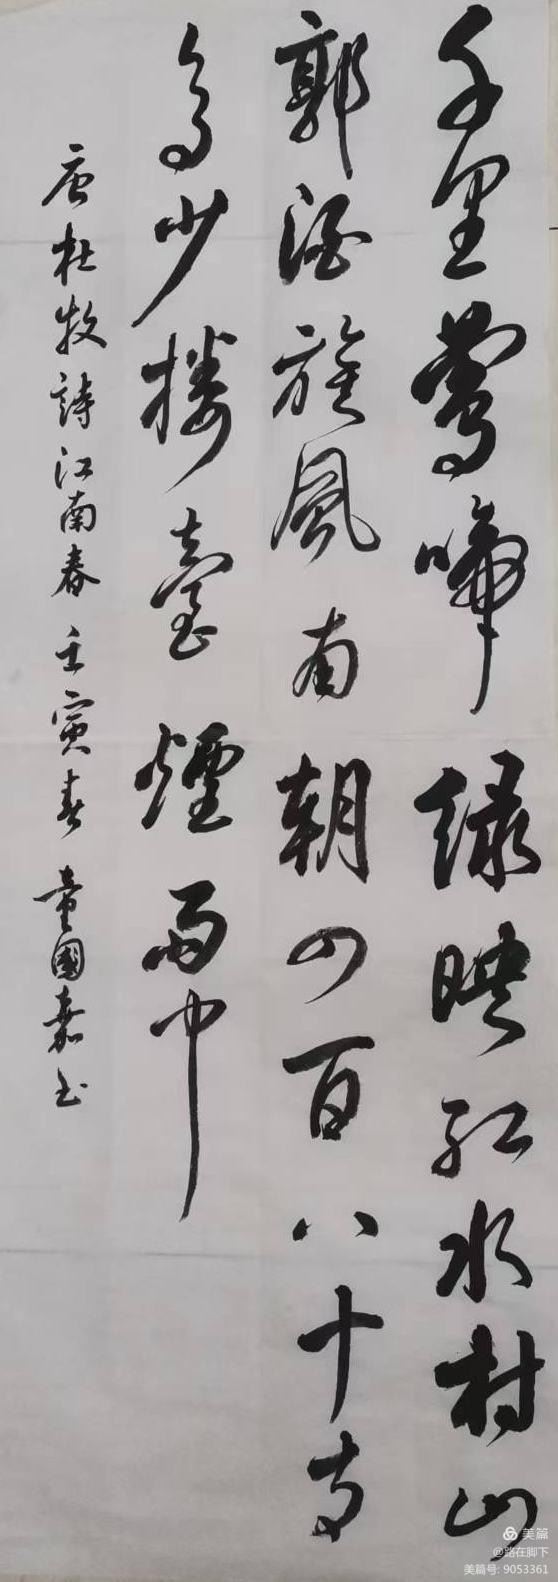 千里莺啼绿映红水村山
郭酒旗风南朝四百八十寺
多少楼臺煙雨中
唐杜牧詩江南春壬寅春童國嘉书
美篇
@路在脚下
美篇号: 9053361